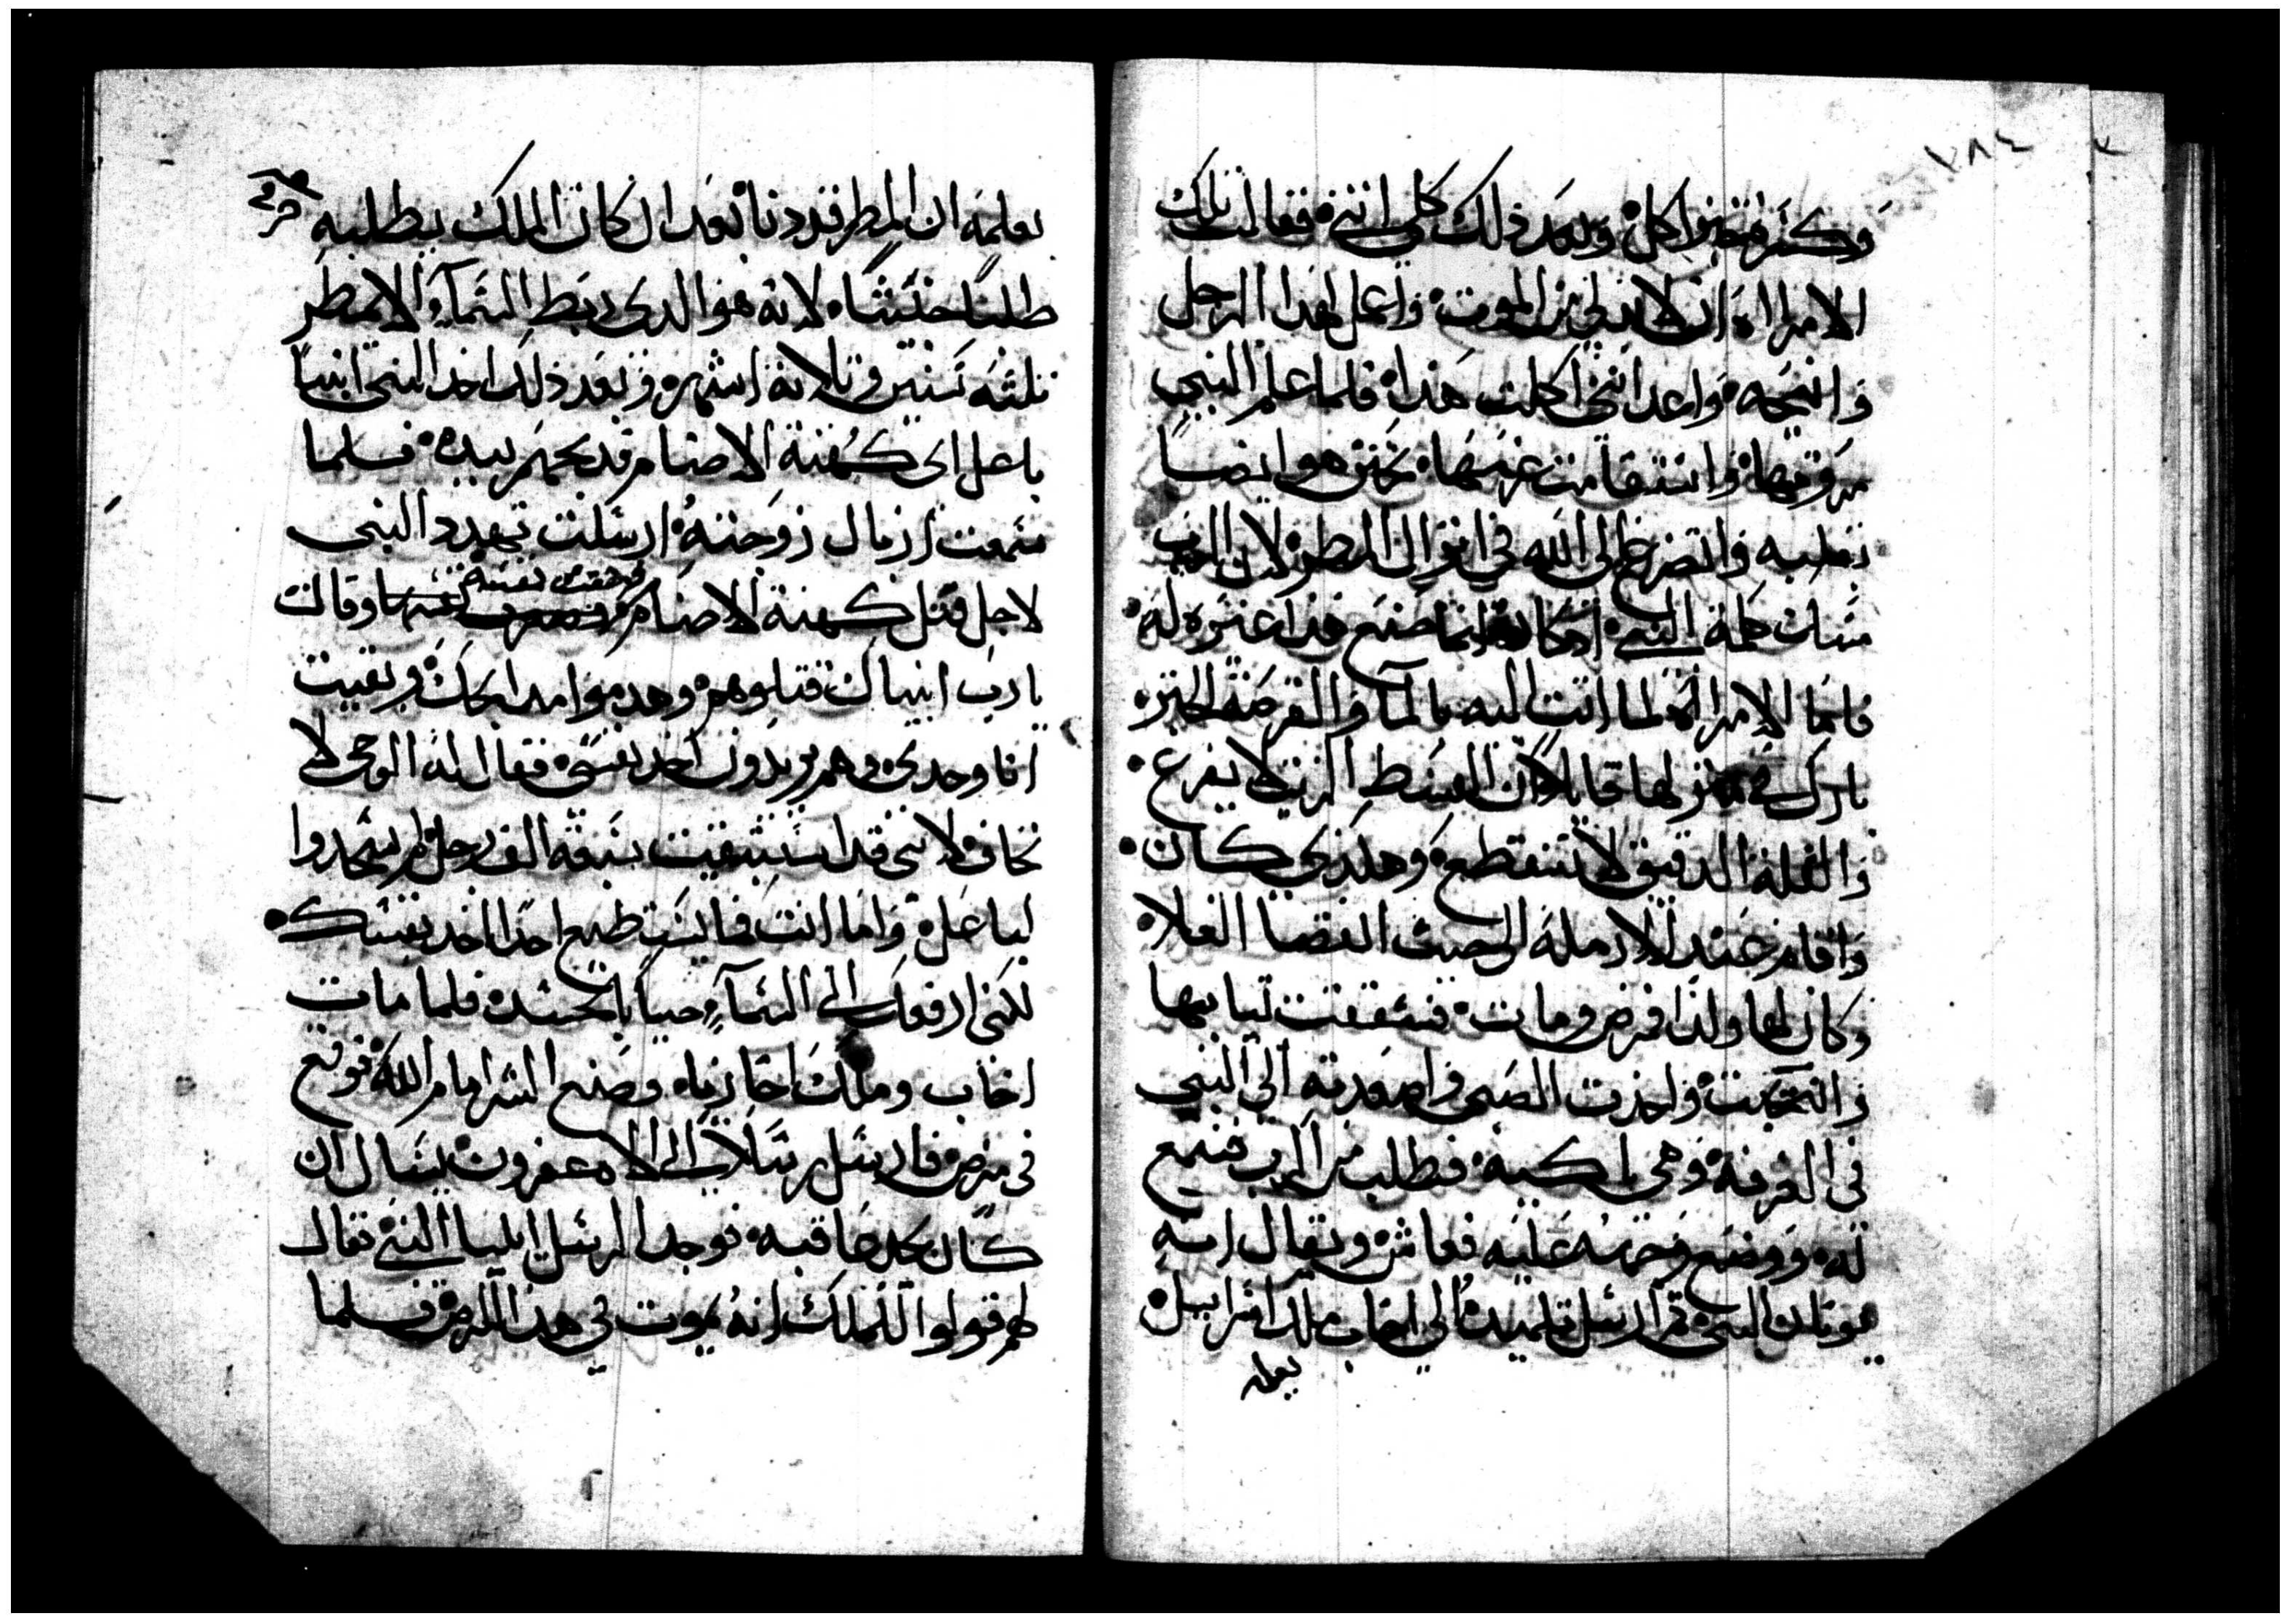 ٢٨٤
وكثر فخبزوا كل وبعد ذلك كلي انتي فقالت تلك
الامراه ان لا بد لي من الموت واعمل لهدا الرجل
وانتيجه واعدا انني اكلت هدا فلما علم النبي
مروتها وانتقامت عزمها تحنن هو ايضا
بقلبه واتضرع الى الله في انزال المطر لان الرب
تبات كلمة النبي انما صنع هدا عتره له
فاما الامراه لما اتت اليه بالما والقرصة الخبز
بارك في منزلها قايلا ان القسط الزيت لا يفرع
والقلة الدقيق لا تنقطع وهكدي كان
واقام عند الارملة الى حيث انقضا الغلا
وكان لها ولدا فمرض ومات فشققت تيابها
وانتحبت واخذت الصبي واصعدته الى النبي
في الغرفة وهي باكيه فطلب من الرب فسمع
له ووضع وجهه عليه فعاش ويقال انه
يونان النبي تم ارسل تلميده الى اخاب ملك اسراييل
يعلمه
يعلمه ان المطر قد دنا بعد ان كان الملك يطلبه
طلبا حتيثا لانه هو الدي ربط السما والا تمطر
ثلثة سنين وتلاتة اشهر وبعد ذلك اخد النبي انبيا
باعل اى كهنة الاصنام قد بحهم بيده فلما
سمعت ازبال زوجته ارسلت تهدد النبي
لاجل قتل كهنة الاصنام نفسه وقالت
يارب انبياك قتلوهم وهدموا مدابحك وبقيت
انا وحدي وهم يريدون اخد نفسي فقال له الوحي لا
تخاف لانني قد استبقيت سبعة الف رجل لم يسجدوا
لباعل واما انت فما يستطيع احدا اخد نفسك
لكني ارفعك الى السما حيا بالجسد فلما مات
اخاب وملك اخازيا وصنع الشر امام الله فوقع
في مرض فارسل رسلا الى الاه عفرون يسال ان
كان يجد عاقبه فوجد الرسل ايليا النبي فقال
لهم قولوا للملك انه يموت في هدا المرض فلما